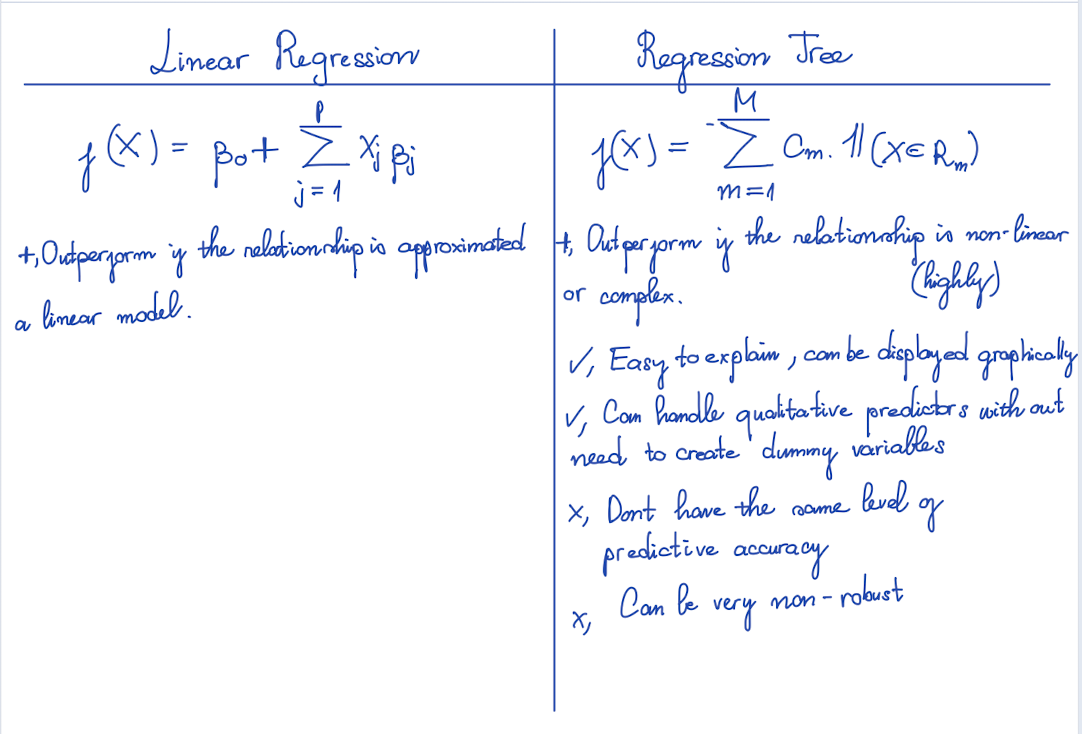 Linear Regression
f(X) = β₀ + Σ_{j=1}^{p} X_j β_j
+, Outperform if the relationship is approximated
a linear model.
Regression Tree
f(X) = Σ_{m=1}^{M} C_m . 1(X ∈ R_m)
+, Outperform if the relationship is non-linear
(highly)
or complex.
✓, Easy to explain, can be displayed graphically
✓, Can handle qualitative predictors with out
need to create dummy variables
x, Dont have the same level of
predictive accuracy
x, Can be very non-robust